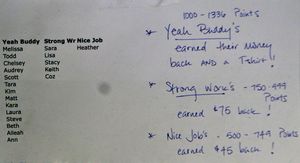 Yeah Buddy Strong Wr Nice Job
Melissa Sara Heather
Todd Lisa
Chelsey Stacy
Audrey Keith
Scott Coz
Tara
Kim
Matt
Kara
Laura
Steve
Beth
Aileah
Ann
1000-1336 Points
* Yeah Buddy's
earned their money
back AND a Tshirt!
* Strong Work's - 750-999
Points
earned $75 back!
* Nice Job's - 500-749 Points
earned $45 back!